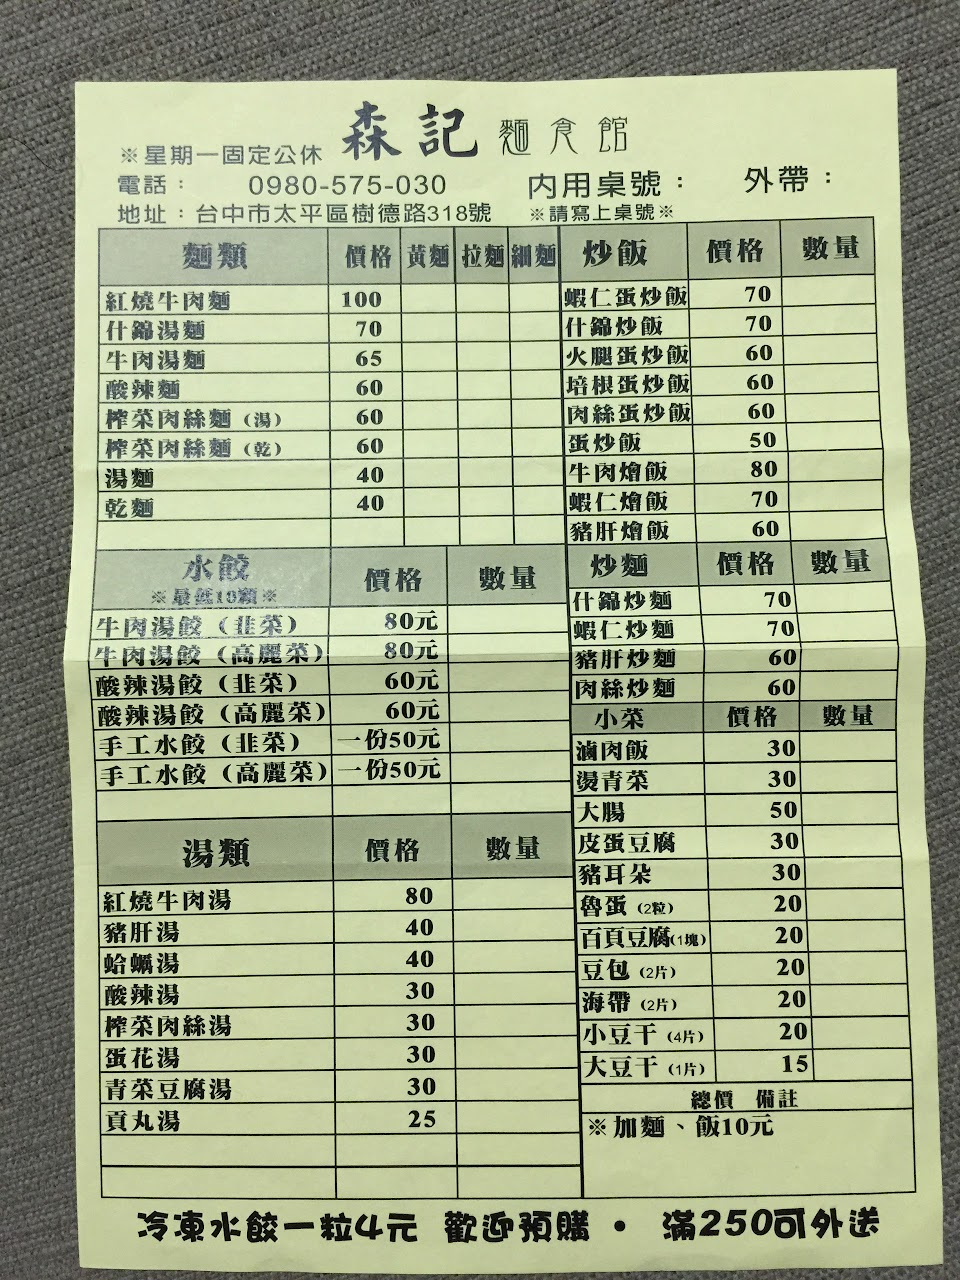 森記 麵食館
※星期一固定公休
電話： 0980-575-030 内用桌號： 外帶：
地址：台中市太平區樹德路318號 ※請寫上桌號※
麵類 價格 黃麵 拉麵 細麵
紅燒牛肉麵 100
什錦湯麵 70
牛肉湯麵 65
酸辣麵 60
榨菜肉絲麵（湯） 60
榨菜肉絲麵（乾） 60
湯麵 40
乾麵 40
水餃 價格 數量
※最低10顆※
牛肉湯餃（韭菜） 80元
牛肉湯餃（高麗菜） 80元
酸辣湯餃（韭菜） 60元
酸辣湯餃（高麗菜） 60元
手工水餃（韭菜） 一份50元
手工水餃（高麗菜） 一份50元
湯類 價格 數量
紅燒牛肉湯 80
豬肝湯 40
蛤蠣湯 40
酸辣湯 30
榨菜肉絲湯 30
蛋花湯 30
青菜豆腐湯 30
貢丸湯 25
炒飯 價格 數量
蝦仁蛋炒飯 70
什錦炒飯 70
火腿蛋炒飯 60
培根蛋炒飯 60
肉絲蛋炒飯 60
蛋炒飯 50
牛肉燴飯 80
蝦仁燴飯 70
豬肝燴飯 60
炒麵 價格 數量
什錦炒麵 70
蝦仁炒麵 70
豬肝炒麵 60
肉絲炒麵 60
小菜 價格 數量
滷肉飯 30
燙青菜 30
大腸 50
皮蛋豆腐 30
豬耳朵 30
魯蛋（2粒） 20
百頁豆腐（1塊） 20
豆包（2片） 20
海帶（2片） 20
小豆干（4片） 20
大豆干（1片） 15
總價 備註
※加麵、飯10元
冷凍水餃一粒4元 歡迎預購 · 滿250可外送